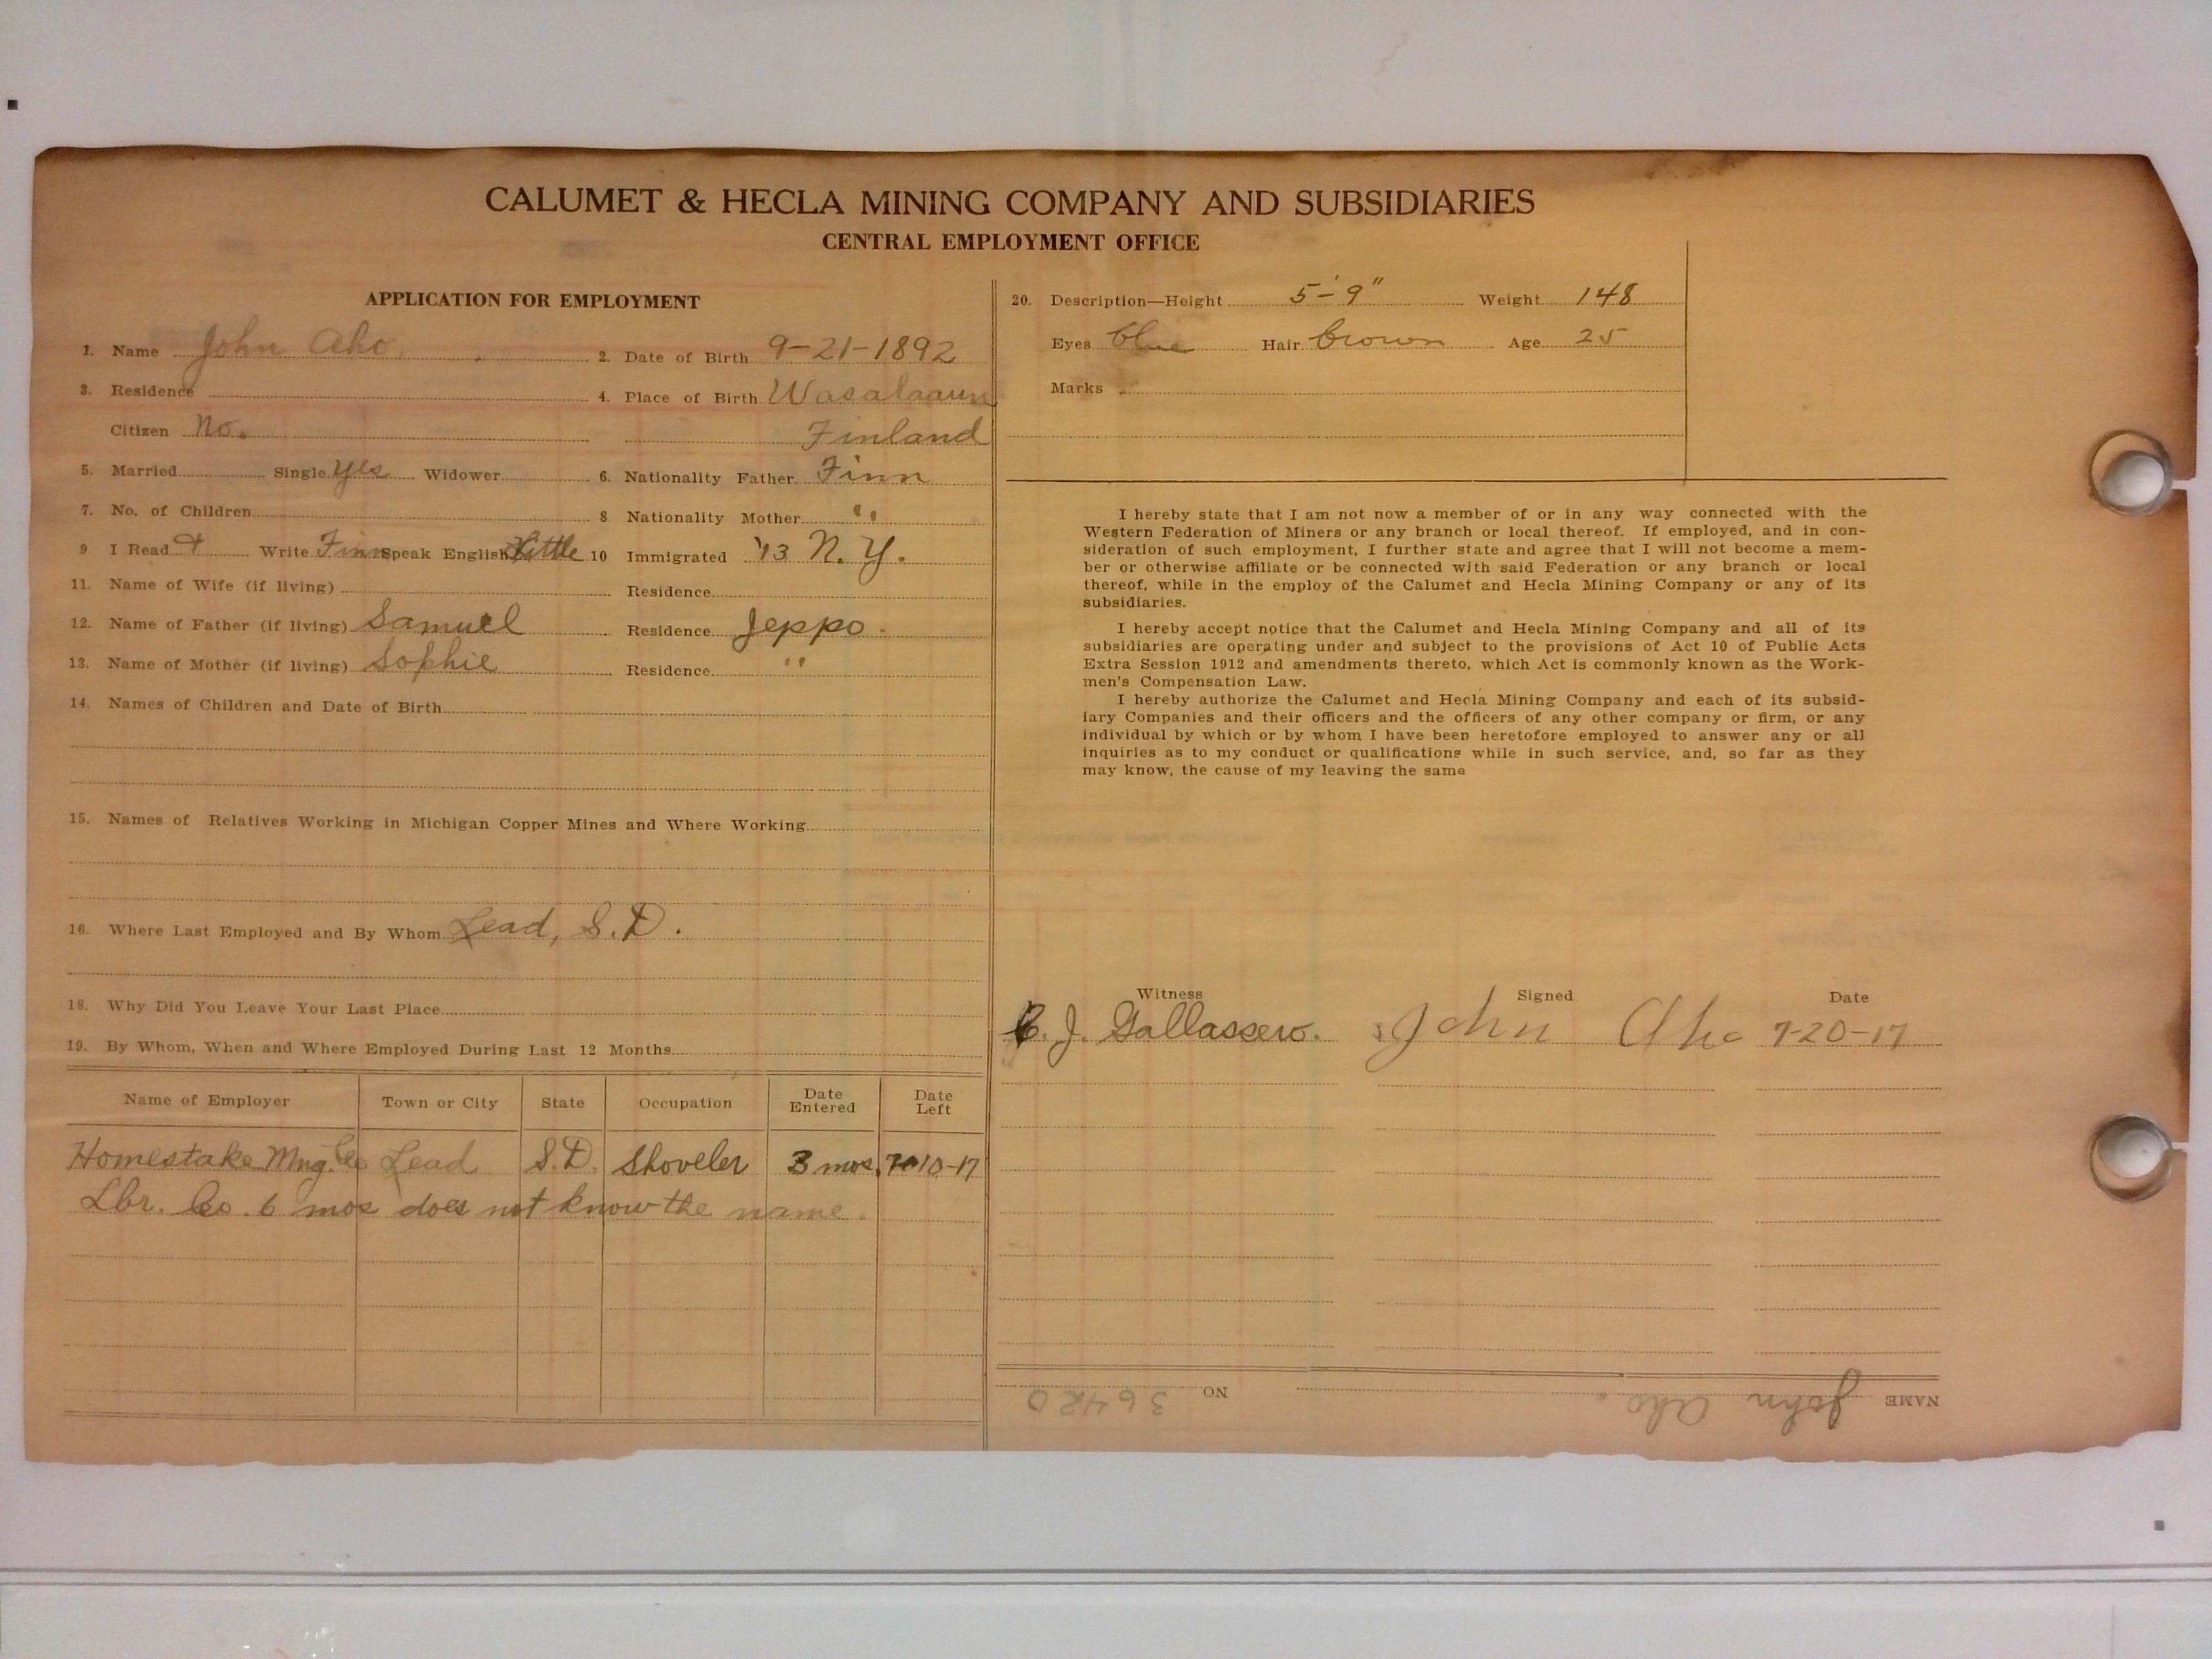 CALUMET & HECLA MINING COMPANY AND SUBSIDIARIES
CENTRAL EMPLOYMENT OFFICE
APPLICATION FOR EMPLOYMENT
1. Name John Aho. 2. Date of Birth 9-21-1892
3. Residence 4. Place of Birth Wasalaaun
Citizen No. Finland
5. Married Single Yes Widower 6. Nationality Father Finn
7. No. of Children 8 Nationality Mother "
9 I Read & Write Finn Speak English Little 10 Immigrated '13 N.Y.
11. Name of Wife (if living) Residence
12. Name of Father (if living) Samuel Residence Jeppo.
13. Name of Mother (if living) Sophie Residence "
14. Names of Children and Date of Birth
15. Names of Relatives Working in Michigan Copper Mines and Where Working
16. Where Last Employed and By Whom Lead, S.D.
18. Why Did You Leave Your Last Place
19. By Whom, When and Where Employed During Last 12 Months
Name of Employer Town or City State Occupation Date Entered Date Left
Homestake Mng. Co Lead S.D. Shoveler 3 mos. 7-10-17
Lbr. Co. 6 mos does not know the name.
20. Description—Height 5'-9" Weight 148
Eyes blue Hair brown Age 25
Marks
I hereby state that I am not now a member of or in any way connected with the
Western Federation of Miners or any branch or local thereof. If employed, and in con-
sideration of such employment, I further state and agree that I will not become a mem-
ber or otherwise affiliate or be connected with said Federation or any branch or local
thereof, while in the employ of the Calumet and Hecla Mining Company or any of its
subsidiaries.
I hereby accept notice that the Calumet and Hecla Mining Company and all of its
subsidiaries are operating under and subject to the provisions of Act 10 of Public Acts
Extra Session 1912 and amendments thereto, which Act is commonly known as the Work-
men's Compensation Law.
I hereby authorize the Calumet and Hecla Mining Company and each of its subsid-
iary Companies and their officers and the officers of any other company or firm, or any
individual by which or by whom I have been heretofore employed to answer any or all
inquiries as to my conduct or qualifications while in such service, and, so far as they
may know, the cause of my leaving the same
Witness Signed Date
J. Gallassero. John Aho 7-20-17
NAME John Aho. NO 36420